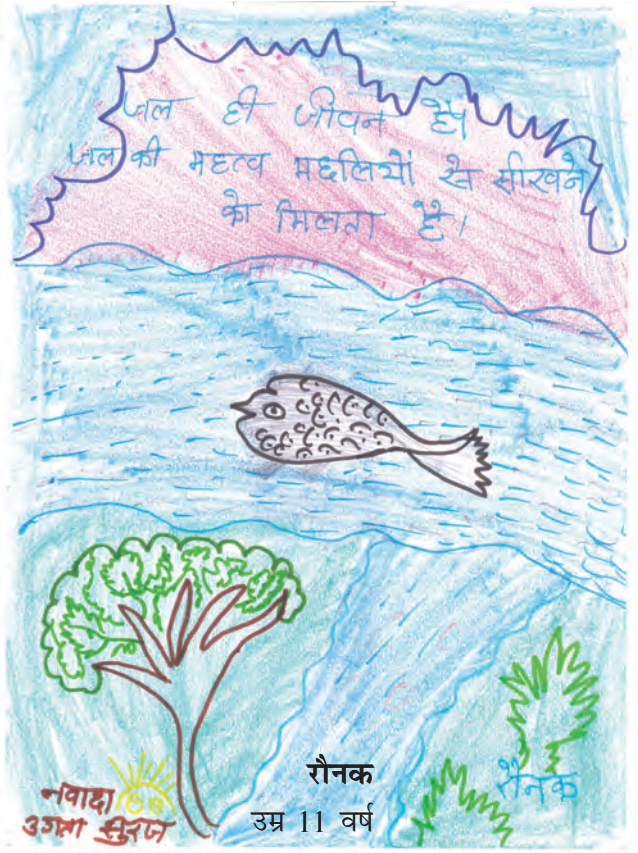 जल ही जीवन है।
जल की महत्व मछलियों से सीखने
को मिलता है।
रौनक
नवादा
उगता सुरज
रौनक
उम्र 11 वर्ष